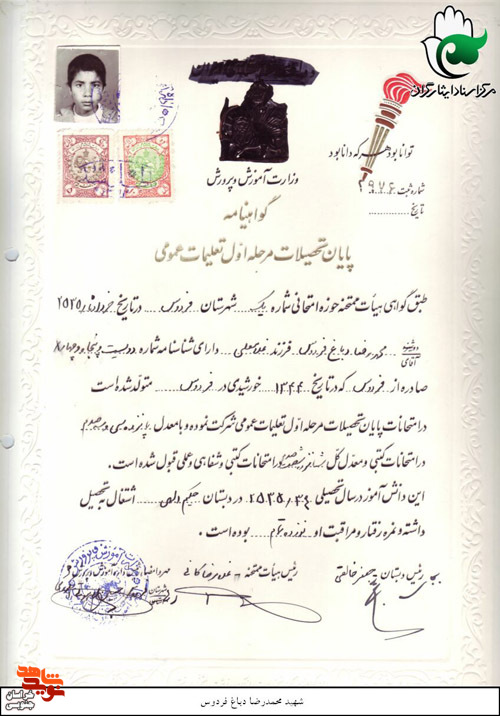 مرکز اسناد ایثارگران
توانا بود هر که دانا بود
وزارت آموزش و پرورش
شماره ثبت ۲۹۷۶
تاریخ
گواهینامه
پایان تحصیلات مرحله اول تعلیمات عمومی
طبق گواهی هیأت ممتحنه حوزه امتحانی شماره یک شهرستان فردوس در تاریخ خرداد ۲۵۳۵
آقای محمد رضا دباغ فردوس فرزند دارای شناسنامه شماره دویست و پنجاه و چهار
صادره از فردوس که در تاریخ ۱۳۴۴ خورشیدی در فردوس متولد شده است
در امتحانات پایان تحصیلات مرحله اول تعلیمات عمومی شرکت نموده و با معدل پانزده و سی صدم
در امتحانات کتبی و معدل کل در امتحانات کتبی و شفاهی و عملی قبول شده است .
این دانش آموز در سال تحصیلی ۲۵۳۵/۳۴ در دبستان حکیم اشتغال به تحصیل
داشته و نمره رفتار و مراقبت او نوزده تمام بوده است .
رئیس دبستان جعفر خالقی
رئیس هیأت ممتحنه غلامرضا
مهر و امضاء اداره آموزش و پرورش
شاهد
نوید
خراسان
جنوبی
شهید محمدرضا دباغ فردوس